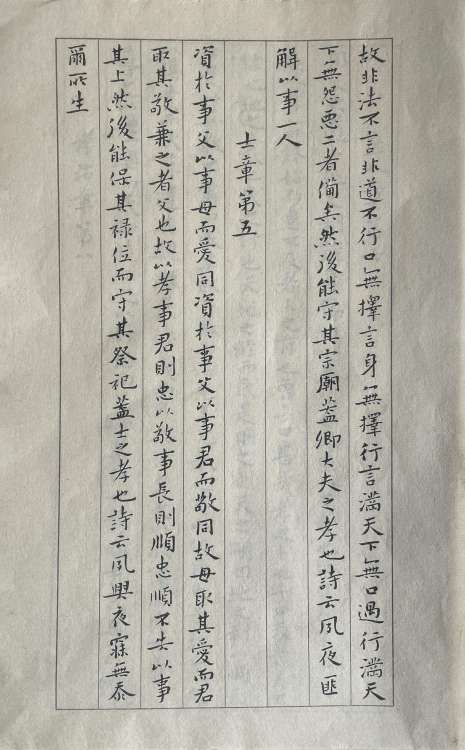 故非法不言非道不行口無擇言身無擇行言滿天下無口過行滿天
下無怨惡三者備矣然後能守其宗廟蓋卿大夫之孝也詩云夙夜匪
解以事一人
士章第五
資於事父以事母而愛同資於事父以事君而敬同故母取其愛而君
取其敬兼之者父也故以孝事君則忠以敬事長則順忠順不失以事
其上然後能保其祿位而守其祭祀蓋士之孝也詩云夙興夜寐無忝
爾所生